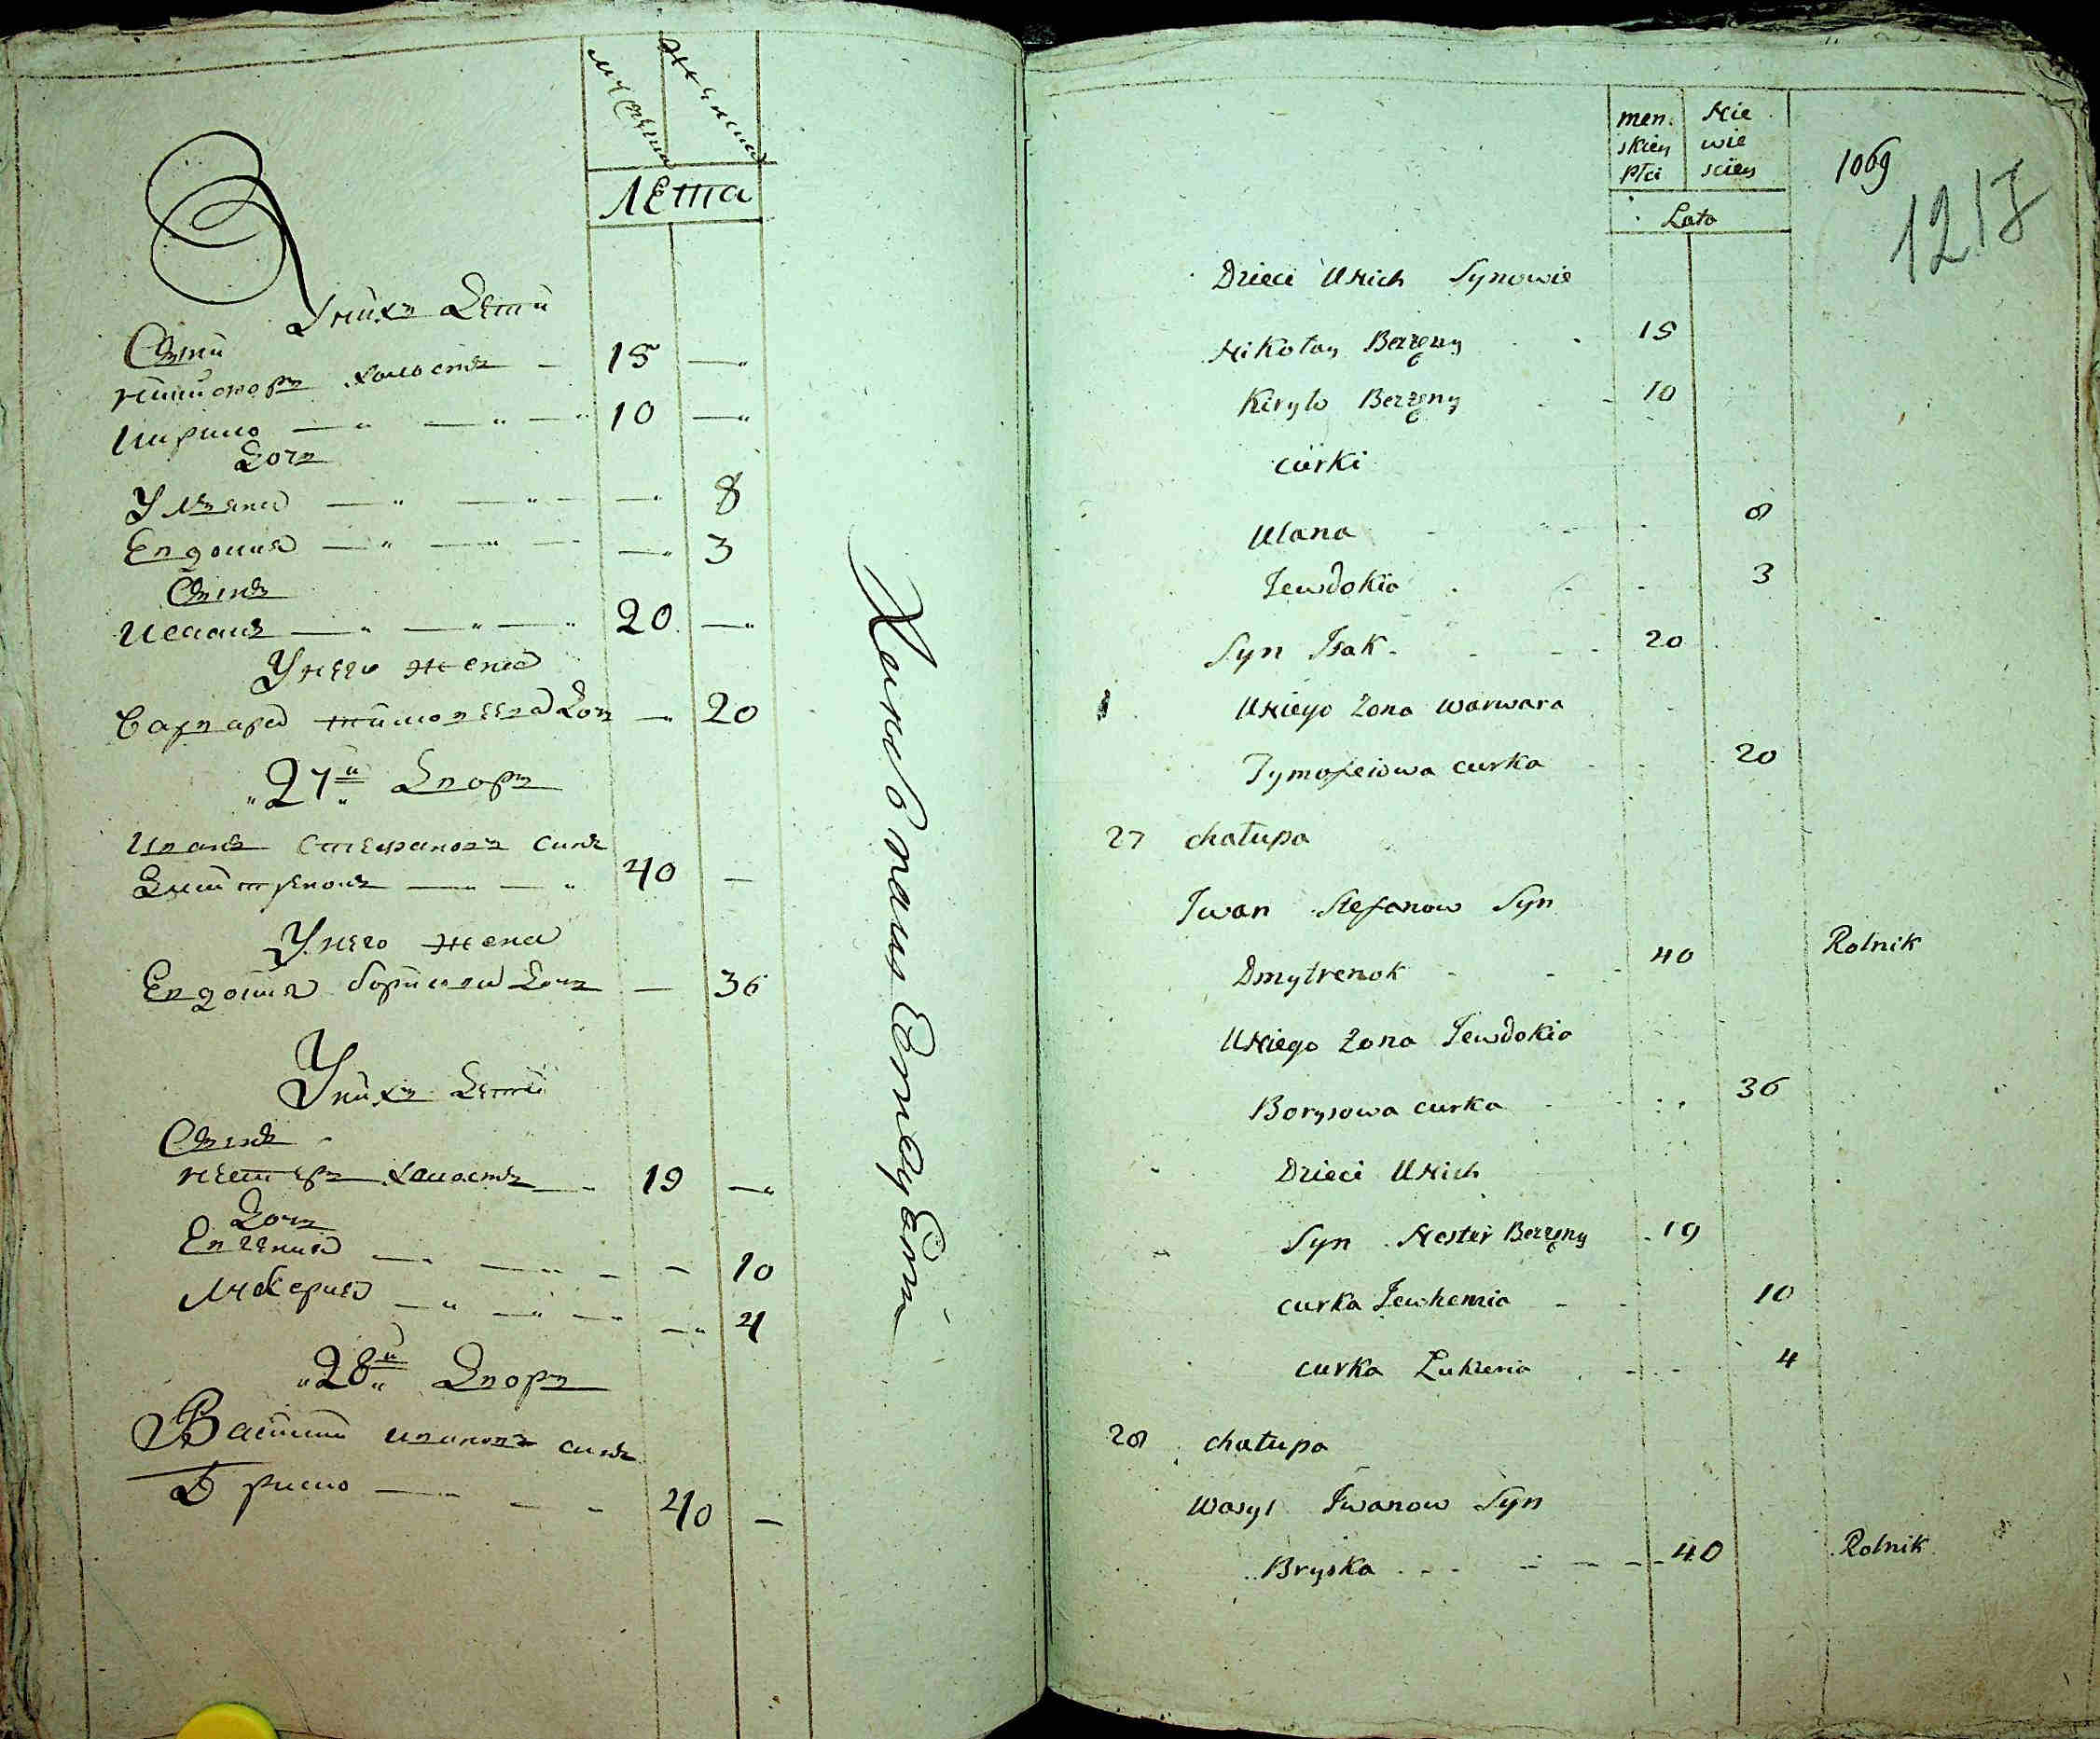 мужеска
женска
Лета
У нихъ Дети
Сыни
Никифоръ холостъ — 15 —
Кирило — — — 10 —
Дочъ
Уляна — — — 8
Евдокия — — — 3
Сынъ
Исаакъ — — — 20 —
У него жена
Варвара тимофеева Дочъ — 20
27й Дворъ
Иванъ Стефановъ синъ
Дмитренокъ — — 40 —
У него жена
Евдокия борисова Дочъ — 36
У нихъ Дети
Сынъ
Нестеръ холостъ — 19 —
Дочъ
Евгения — — — — 10
Лукерия — — — — 4
28й Дворъ
Василий ивановъ синъ
Бриско — — — 40 —
men. Nie
skiey wie
Płci sciey
Lata
1069
1217
Dzieci U Nich Synowie
Nikołay Bezżęny 15
Kiryło Bezżęny 10
curki
Ulana 8
Jewdokia 3
Syn Isak 20
U Niego Zona Warwara
Tymofeiowa curka 20
27 chałupa
Iwan Stefanow Syn
Dmytrenok 40 Rolnik
U Niego Zona Jewdokia
Borysowa curka 36
Dzieci U Nich
Syn Nester Bezżęny 19
curka Jewhemia 10
curka Łukieria 4
28 chałupa
Wasyl Iwanow Syn
Bryska 40 Rolnik